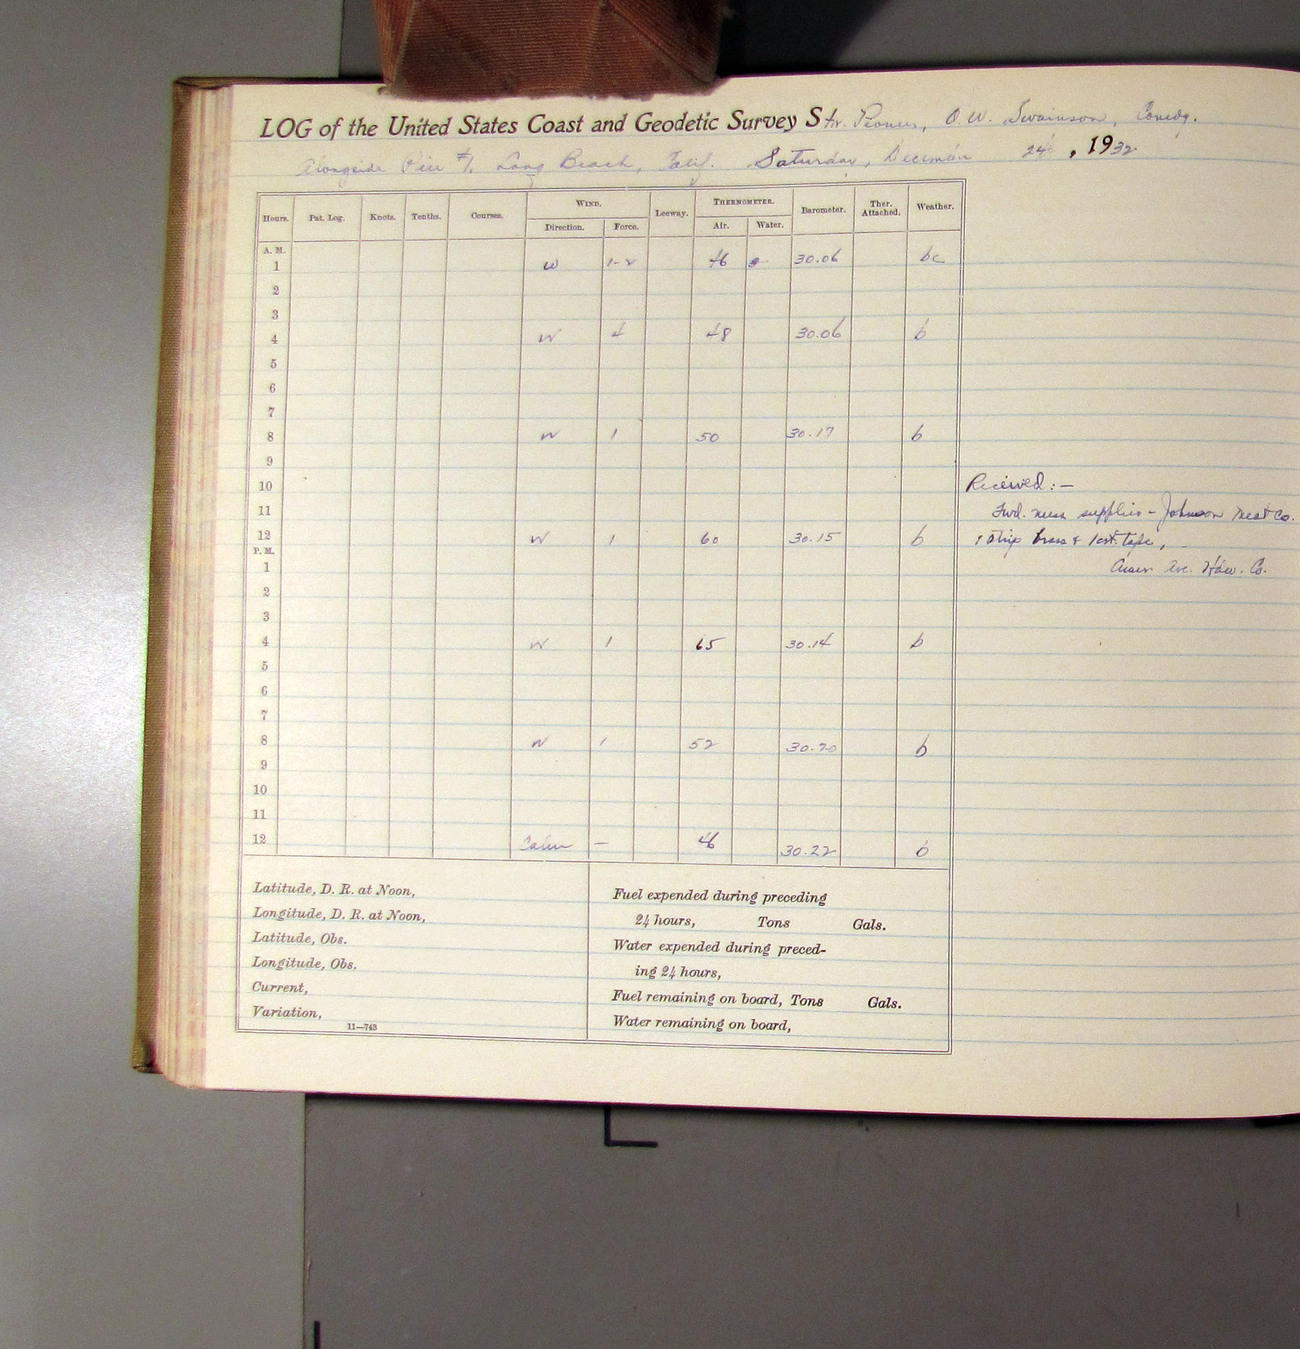 LOG of the United States Coast and Geodetic Survey Str. Pioneer, O. W. Swainson, Comdg.
Alongside Pier #1, Long Beach, Calif. Saturday, December 24, 1932
Hours. Pat. Log. Knots. Tenths. Courses. WIND. Leeway. THERMOMETER. Barometer. Ther. Attached. Weather.
Direction. Force. Air. Water.
A. M.
1 W 1-2 46 30.06 bc
2
3
4 W 4 48 30.06 b
5
6
7
8 W 1 50 30.17 b
9
10 Received:-
11 Fwd. mess supplies - Johnson Meat Co.
12 W 1 60 30.15 b 1 strip brass & tape,
P. M.
1 Ave. Hdw. Co.
2
3
4 W 1 65 30.14 b
5
6
7
8 W 1 52 30.20 b
9
10
11
12 Calm - 46 30.22 b
Latitude, D. R. at Noon,
Longitude, D. R. at Noon,
Latitude, Obs.
Longitude, Obs.
Current,
Variation,
11—743
Fuel expended during preceding
24 hours, Tons Gals.
Water expended during preced-
ing 24 hours,
Fuel remaining on board, Tons Gals.
Water remaining on board,